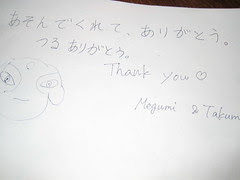 あそんでくれて、ありがとう。
つる ありがとう。
Thank you ♡
Megumi & Takumi